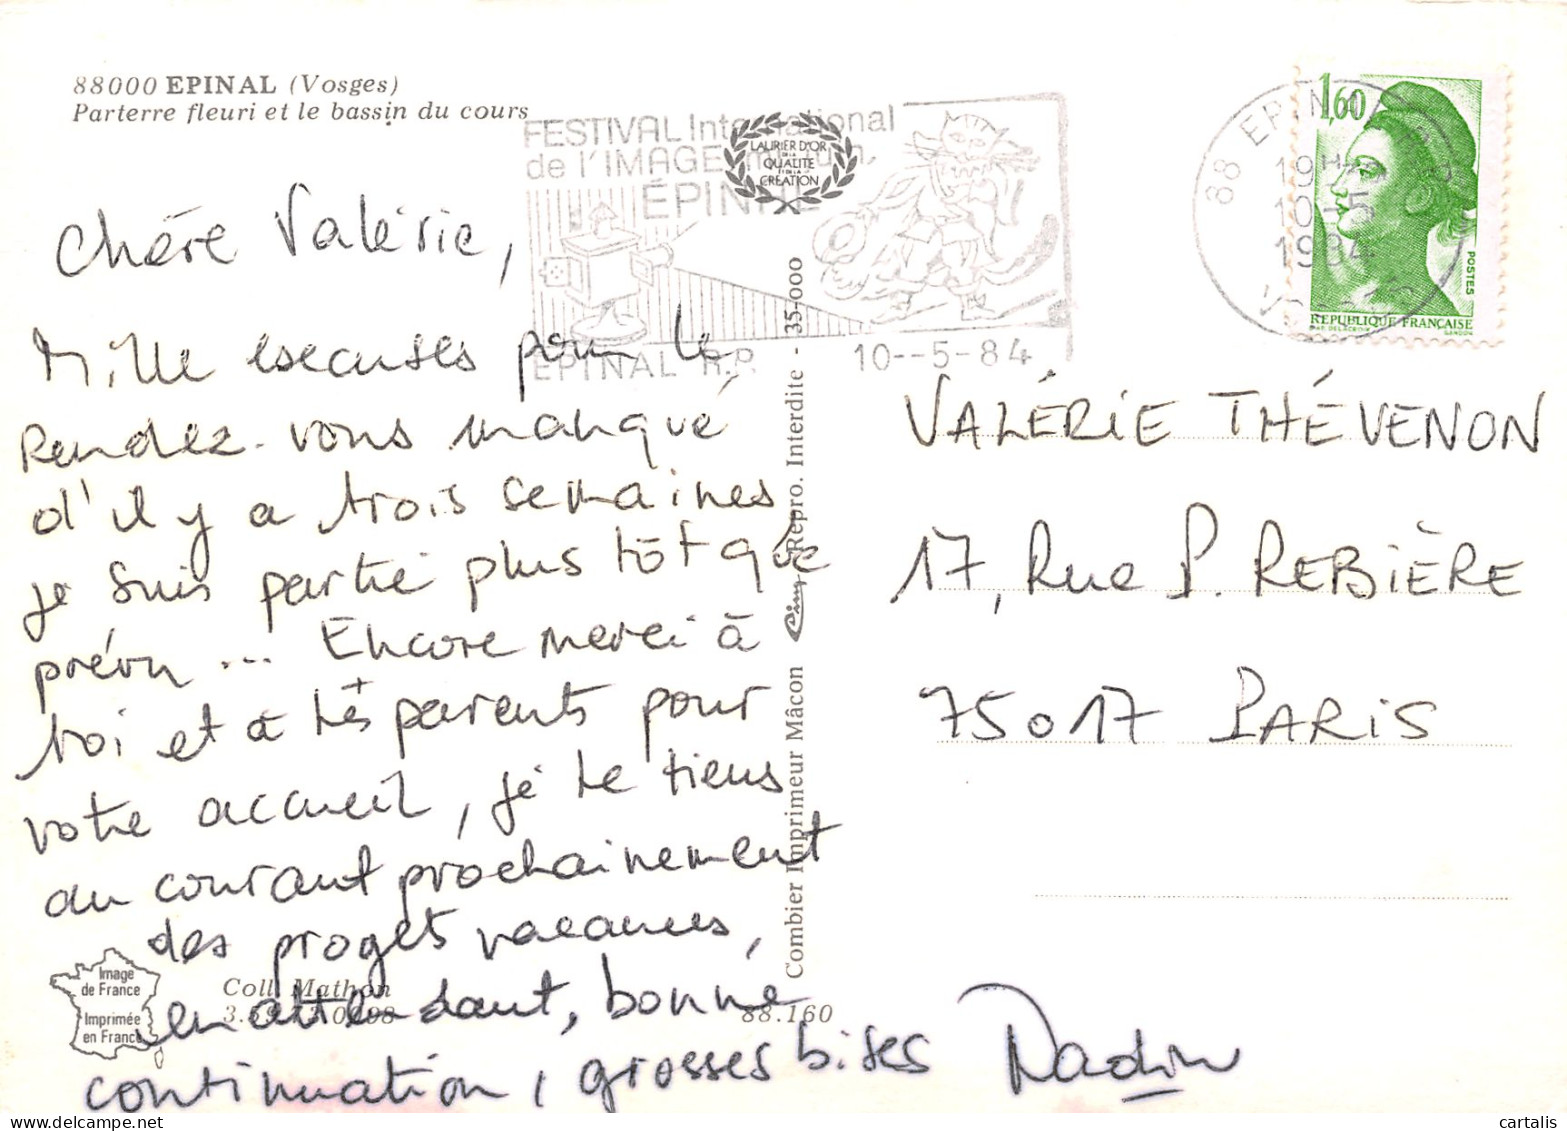 88000 EPINAL (Vosges)
Parterre fleuri et le bassin du cours
FESTIVAL International
de l'IMAGE
ÉPINAL
EPINAL R.P. 10--5-84
LAURIER D'OR
DE LA
QUALITE
ET DE LA
CREATION
88 EPINAL
19H
10-5
1984
VOSGES
1,60
POSTES
REPUBLIQUE FRANÇAISE
Chère Valérie,
Mille esecuses pour le
Rendez-vous manqué
d'il y a trois semaines
je suis partie plus tôt que
prévu ... Encore merci à
toi et à tes parents pour
votre accueil, je te tiens
au courant prochainement
des progets vacances,
en attendant, bonne
continuation, grosses bises Nadine
VALÉRIE THÉVENON
17, Rue P. REBIÈRE
75017 PARIS
Combier Imprimeur Mâcon Cim Repro. Interdite - 35-000
Image
de France
Imprimée
en France
Coll. Mathon
88.160
cartalis